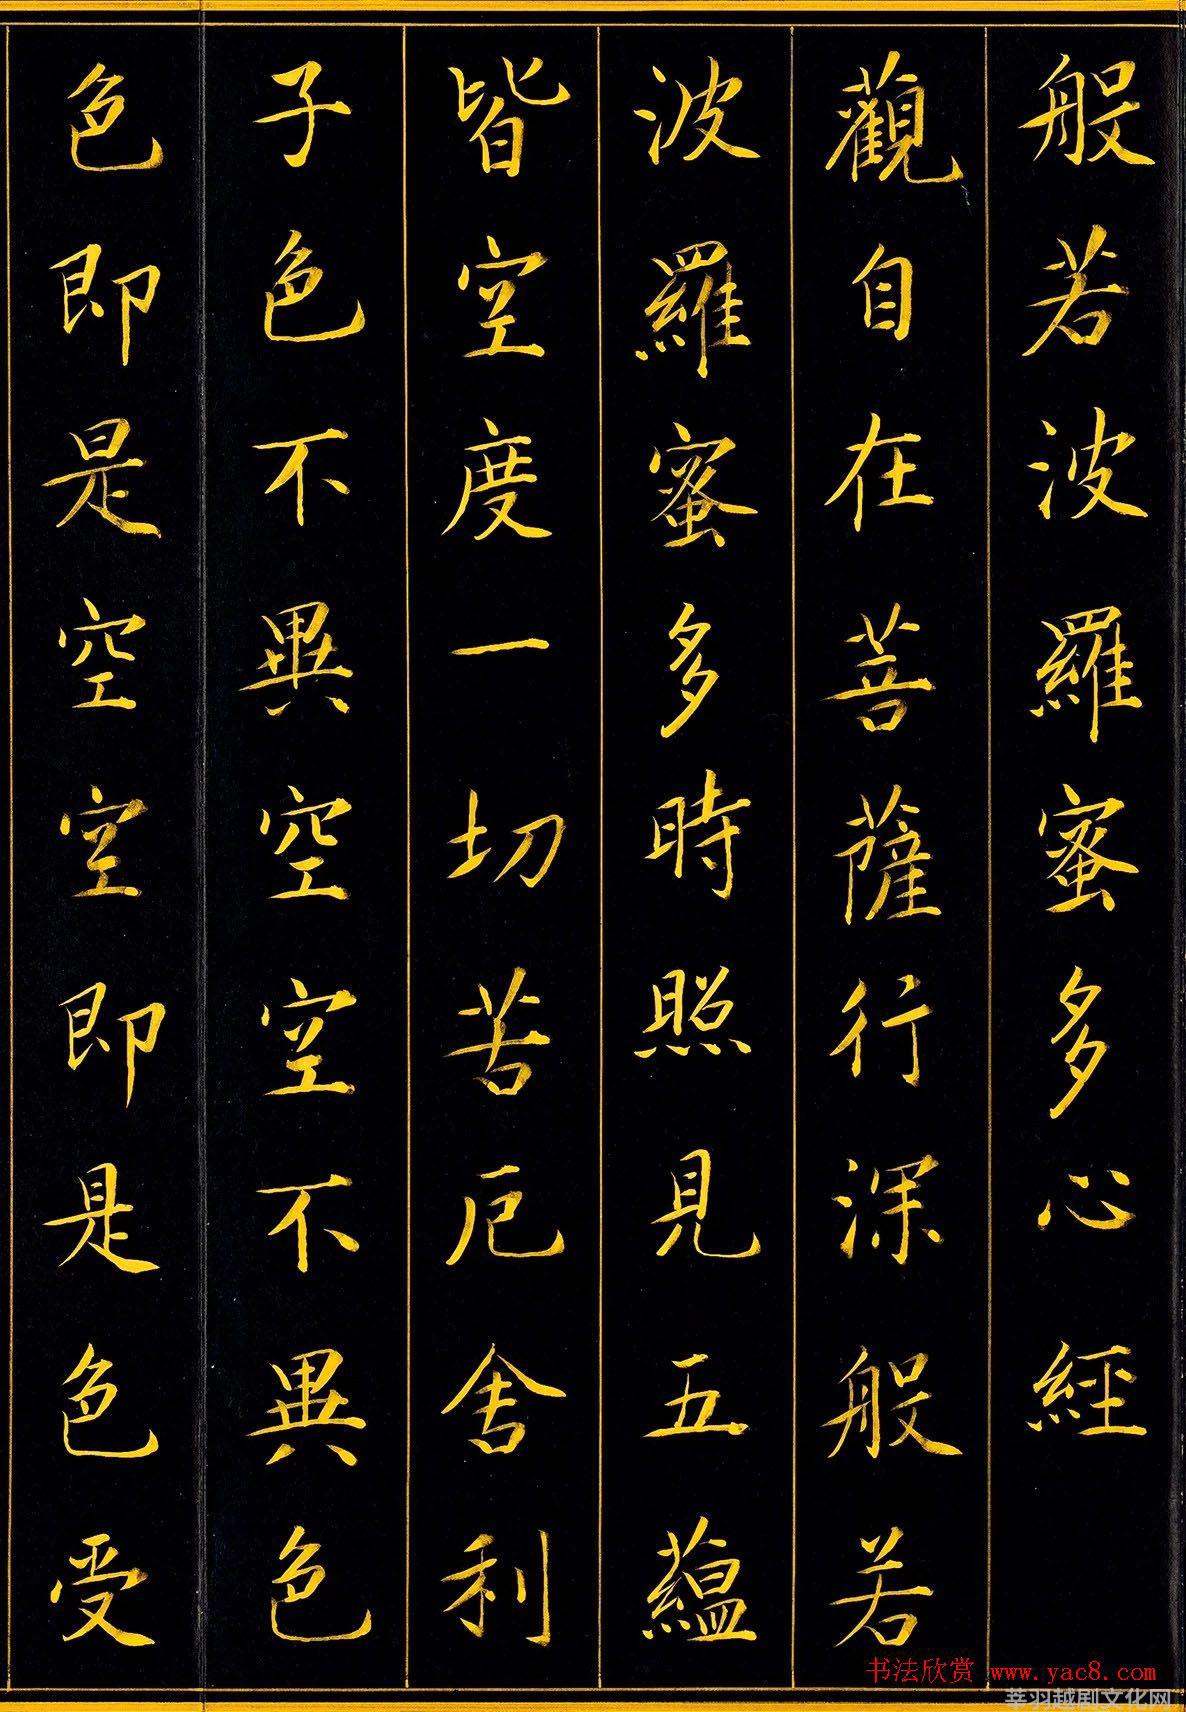 般若波羅蜜多心經
觀自在菩薩行深般若
波羅蜜多時照見五蘊
皆空度一切苦厄舍利
子色不異空空不異色
色即是空空即是色受
书法欣赏 www.yac8.com
莘羽越剧文化网